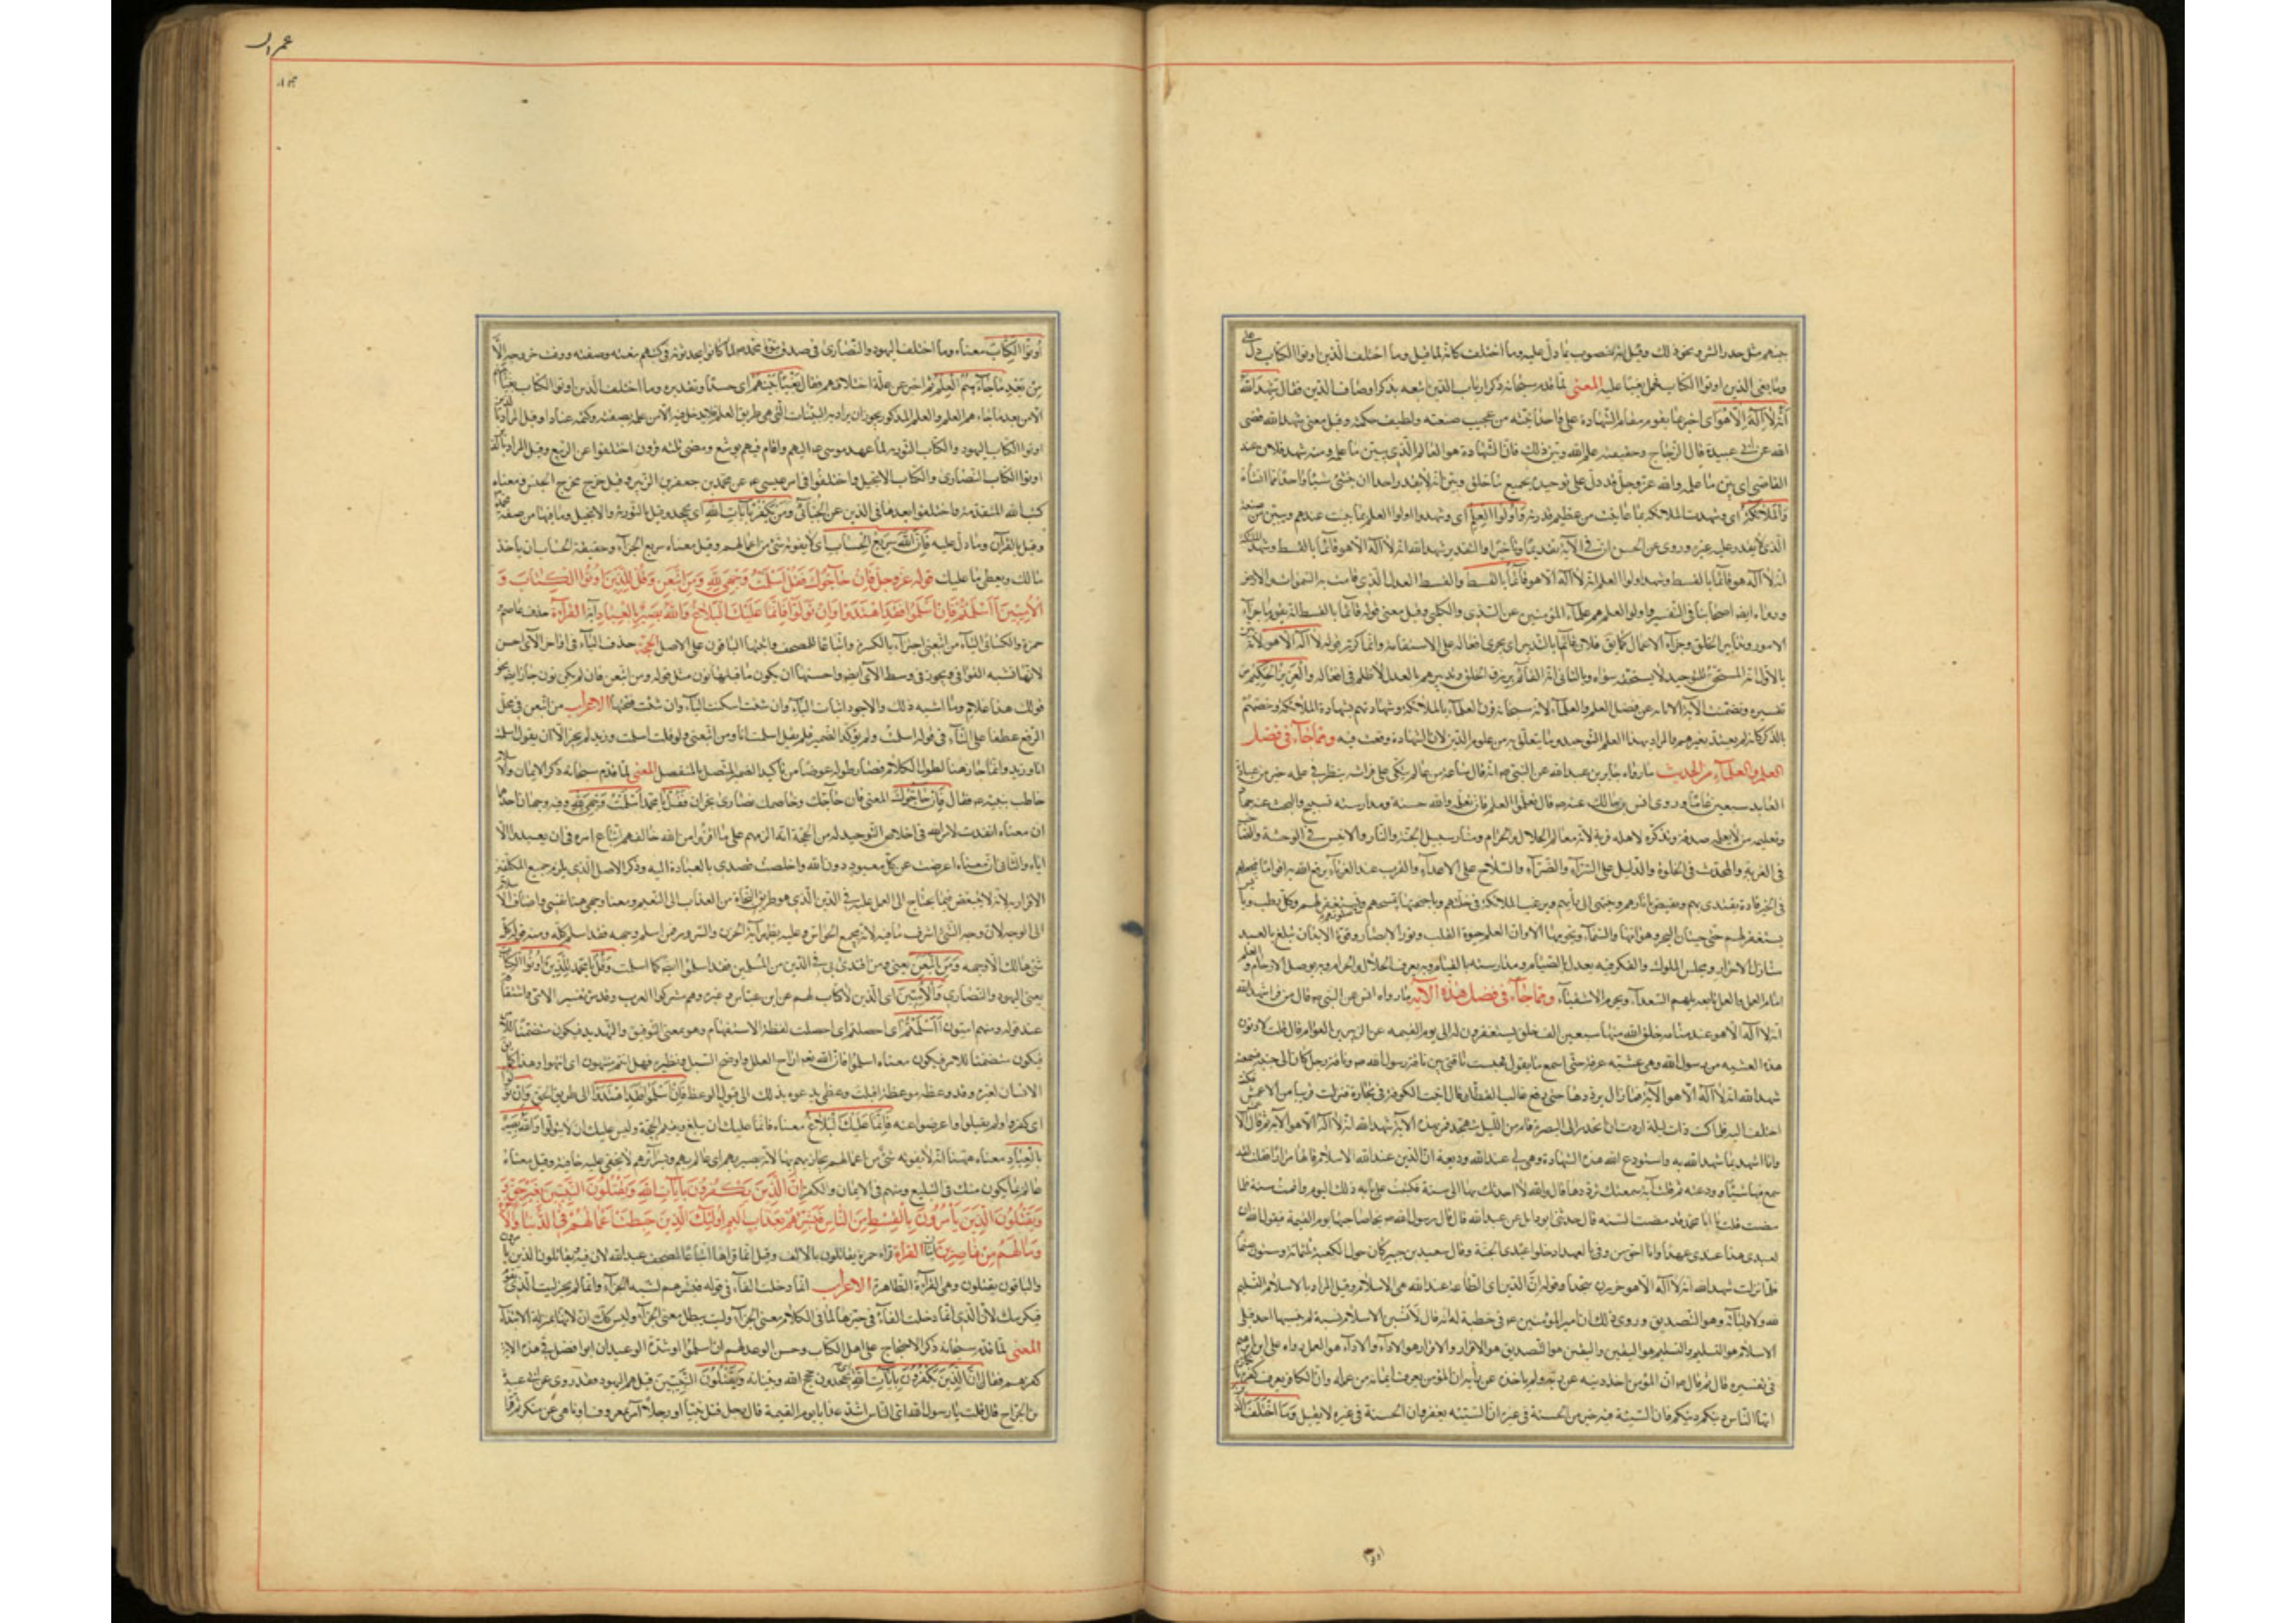 جئتهم مثل حذر الشر ونحو ذلك وقيل انه منصوب بما دل عليه وما اختلف كانه لما قيل وما اختلف الذين اوتوا الكتاب دل على
وما بغى الذين اوتوا الكتاب فحمل بغيا عليه المعنى لما قدم سبحانه ذكر ارباب الدين اتبعه بذكر اوصاف الدين فقال شهد الله
انه لا اله الا هو اى اخبر بما يقوم مقام الشهادة على وحدانيته من عجيب صنعته ولطيف حكمته وقيل معنى شهد الله قضى
الله عن ابى عبيدة قال الزجاج وحقيقته علم الله وبين ذلك فان الشهادة هو العالم الذى يبين ما علم ومنه شهد فلان عند
القاضى اى بين ما علم والله عز وجل قد دل على توحيده بجميع ما خلق وبين انه لا يقدر احد ان ينشئ شيئا واحدا مما انشأه
والملائكة اى وشهدت الملائكة بما عاينت من عظيم قدرته واولوا العلم اى وشهد اولوا العلم بما ثبت عندهم وتبين من صنعه
الذى لا يقدر عليه غيره وروى عن الحسن ان فى الآية تقديما وتاخيرا والتقدير شهد الله انه لا اله الا هو قائما بالقسط وشهد الملائكة
انه لا اله هو قائما بالقسط وشهد اولوا العلم انه لا اله الا هو قائما بالقسط والقسط العدل الذى قامت به السموات والارض
ورواه ايضا اصحابنا فى التفسير واولوا العلم هم علماء المؤمنين عن السدى والكلبى وقيل معنى قوله قائما بالقسط انه يقوم باجراء
الامور وتدابير الخلق وجزاء الاعمال كما يق فلان قائم بالتدبير اى يجرى افعاله على الاستقامة وانما كرر قوله لا اله الا هو لانه بين
بالاول انه المستحق للتوحيد لا يستحقه سواه وبالثانى انه القائم برزق الخلق وتدبيرهم بالعدل لا ظلم فى افعاله والعزيز الحكيم مر
تفسيره وتضمنت الآية الابانة عن فضل العلم والعلماء لانه سبحانه قرن العلماء بالملائكة وشهادتهم بشهادة الملائكة وخصهم
بالذكر كانه لم يعتد بغيرهم والمراد بهذا العلم التوحيد وما يتعلق به من علوم الدين لان الشهادة وقعت فيه ومما جاء فى فضل
العلم والعلماء من الحديث ما رواه جابر بن عبد الله عن النبى ص انه قال ساعة من عالم يتكى على فراشه ينظر فى علمه خير من عبادة
العابد سبعين عاما وروى انس بن مالك عنه ص قال تعلموا العلم فان تعلمه لله حسنة ومدارسته تسبيح والبحث عنه جهاد
وتعليمه من لا يعلمه صدقة وتذكره لاهله قربة لانه معالم الحلال والحرام ومنار سبيل الجنة والنار والانيس فى الوحشة والصاحب
فى الغربة والمحدث فى الخلوة والدليل على السراء والضراء والسلاح على الاعداء والقرب عند الغرباء يرفع الله به اقواما فيجعلهم
فى الخير قادة يقتدى بهم ويقتص بآثارهم وينتهى الى رأيهم وترغب الملائكة فى خلتهم وباجنحتها تمسحهم وفى صلوتهم تستغفر لهم وكل رطب ويابس
يستغفر لهم حتى حيتان البحر وهوامها والسماء ونجومها الا وان العلم حيوة القلب ونور الابصار وقوة الابدان يبلغ بالعبد
منازل الاحرار ومجلس الملوك والفكر فيه يعدل بالصيام ومدارسته بالقيام وبه يعرف الحلال والحرام وبه يوصل الارحام والعلم
امام العمل والعمل تابعه يلهم السعداء ويحرم الاشقياء ومما جاء فى فضل هذه الآية ما رواه انس عن النبى ص قال من قرأ شهد الله
انه لا اله الا هو عند منامه خلق الله منها سبعين الف خلق يستغفرون له الى يوم القيمة عن الزبير بن العوام قال قلت لادنون
هذه العشية من رسول الله وهى عشية عرفة حتى اسمع ما يقول فحبست ناقتى بين ناقة رسول الله ص وناقة رجل كان الى جنبه فسمعته
شهد الله انه لا اله الا هو الآية فما زال يرددها حتى رفع غالب القطان قال اتيت الكوفة فى تجارة فنزلت قريبا من الاعمش فكنت
اختلف اليه فلما كنت ذات ليلة اردت ان انحدر الى البصرة قام من الليل يتهجد فمر بهذه الآية شهد الله انه لا اله الا هو الآية ثم قال
وانا اشهد بما شهد الله به واستودع الله هذه الشهادة وهى لى عند الله وديعة ان الدين عند الله الاسلام قالها مرارا فقلت لقد
سمع فيها شيئا وودعته ثم قلت آية سمعتك ترددها قال والله لا احدثك بها الى سنة فكتبت على بابه ذلك اليوم واقمت سنة فلما
مضت قلت يا ابا محمد قد مضت السنة قال حدثنى ابو وائل عن عبد الله قال قال رسول الله ص يجاء صاحبها يوم القيمة فيقول الله ان
لعبدى هذا عندى عهدا وانا احق من وفى بالعهد ادخلوا عبدى الجنة وقال سعيد بن جبير كان حول الكعبة ثلثمائة وستون صنما
فلما نزلت شهد الله انه لا اله الا هو خررن سجدا وقوله ان الدين اى الطاعة عند الله هى الاسلام وقيل المراد بالاسلام التسليم
لله ولاوليائه وهو التصديق وروى ذلك ان امير المؤمنين ع فى خطبة له انه قال لانسبن الاسلام نسبة لم ينسبها احد قبلى
الاسلام هو التسليم والتسليم هو اليقين واليقين هو التصديق هو الاقرار والاقرار هو الاداء والاداء هو العمل رواه على بن ابراهيم
فى تفسيره قال ثم قال ص ان المؤمن اخذ دينه عن ربه ولم ياخذه عن رأيه ان المؤمن يعرف ايمانه من عمله وان الكافر يعرف كفره بانكاره
ايها الناس دينكم دينكم فان السيئة فيه خير من الحسنة فى غيره ان السيئة يغفر وان الحسنة فى غيره لا يقبل وما اختلف الذين
اوتوا
عمران
اوتوا الكتاب معناه وما اختلف اليهود والنصارى فى صدق نبوة محمد ص لما كانوا يجدونه فى كتبهم بنعته وصفته ووقت خروجه الا
من بعد ما جاءهم العلم ثم اخبر عن علة اختلافهم فقال بغيا بينهم اى حسدا وتقديره وما اختلف الذين اوتوا الكتاب بغيا بينهم
الا من بعد ما جاءهم العلم والعلم المذكور يجوز ان يراد به البينات التى هى طريق العلم فلا يدخل فيه الا من علم بصفته وكتمه عنادا وقيل المراد بالذين
اوتوا الكتاب اليهود والكتاب التورية لما عهد موسى ع اليهم واقام فيهم يوشع ومضى ثلثه قرون اختلفوا عن الربيع وقيل المراد بالذين
اوتوا الكتاب النصارى والكتاب الانجيل واختلفوا فى امر عيسى ع عن محمد بن جعفر بن الزبير وقيل خرج مخرج الجنس ومعناه
كتب الله المتقدمة واختلفوا بعدها فى الدين عن الجبائى ومن يكفر بآيات الله اى يجحد وقيل بالتورية والانجيل وما فيها من صفة محمد
وقيل بالقرآن وما دل عليه فان الله سريع الحساب اى لا يفوته شئ من اعمالهم وقيل معناه سريع الجزاء وحقيقة الحساب ان ياخذ
ما لك ويعطى ما عليك قوله عز وجل فان حاجوك فقل اسلمت وجهى لله ومن اتبعن وقل للذين اوتوا الكتاب و
الاميين ءاسلمتم فان اسلموا فقد اهتدوا وان تولوا فانما عليك البلاغ والله بصير بالعباد آية القراءة حذف عاصم
حمزة والكسائى الياء من اتبعنى اجتزاء بالكسرة واتباعا للمصحف واثبتها الباقون على الاصل الحجة حذف الياء فى اواخر الآى احسن
لانها تشبه القوافى ويجوز فى وسط الآى ايضا واحسنها ان يكون ما قبلها نون مثل قوله ومن اتبعن فان لم يكن نون جاز ايضا نحو
قولك هذا غلام وما اشبه ذلك والاجود اثبات الياء وان شئت اسكنت الياء وان شئت فتحتها الاعراب من اتبعن فى محل
الرفع عطفا على التاء فى قوله اسلمت ولم يؤكد الضمير فلم يقل اسلمت انا ومن اتبعنى ولو قلت اسلمت وزيد لم يجز الا ان يقول اسلمت
انا وزيد وانما جاز هنا لطول الكلام فصار طوله عوضا من تأكيد الضمير المتصل بالمنفصل المعنى لما قدم سبحانه ذكر الايمان والاسلام
خاطب نبيه ص فقال فان حاجوك المعنى فان حاجك وخاصمك نصارى نجران فقل يا محمد اسلمت وجهى لله وفيه وجهان احدهما
ان معناه انقدت لامر الله فى اخلاص التوحيد له من الحجة انه الزمهم على ما اقروا من الله خالقهم اتباع امره فى ان يعبد الا
اياه والثانى ان معناه اعرضت عن كل معبود دون الله واخلصت قصدى بالعبادة اليه وذكر الاصل الذى يلزم جميع المكلفين
الاقرار به لانه لا يتبعض فيما يحتاج الى العمل عليه فى الدين الذى هو طريق النجاة من العذاب الى النعيم ومعنى وجهى هنا نفسى واضاف الاسلام
الى الوجه لان وجه الشئ اشرف ما فيه لانه يجمع الحواس وعليه يظهر آية الحزن والسرور فمن اسلم وجهه فقد اسلم كله ومنه قوله كل
شئ هالك الا وجهه ومن اتبعن يعنى ومن اهتدى بى فى الدين من المسلمين فقد اسلموا ايضا كما اسلمت وقل يا محمد للذين اوتوا الكتاب
يعنى اليهود والنصارى والاميين اى الذين لا كتاب لهم عن ابن عباس وغيره وهم مشركوا العرب وقد مر تفسير الامى واشتقاقه
عند قوله ومنهم اميون ءاسلمتم اى اخلصتم اى اخلصت لفظه الاستفهام وهو بمعنى التوقيف والتهديد فيكون متضمنا للامر
فيكون متضمنا للامر فيكون معناه اسلموا فان الله تع ازاح العلل واوضح السبل ونظيره فهل انتم منتهون اى انتهوا وهذا كما يق
الانسان لغيره وقد وعظه موعظة اقبلت وعظى يدعوه بذلك الى قبول الوعظ فان اسلموا فقد اهتدوا الى طريق الحق وان تولوا
اى كفروا ولم يقبلوا واعرضوا عنه فانما عليك البلاغ معناه فانما عليك ان يبلغ ويقيم الحجة وليس عليك ان لا يتولوا والله بصير
بالعباد معناه ههنا انه لا يفوته شئ من اعمالهم يجازيهم بها لانه بصير بهم اى عالم بهم وبسرائرهم لا يخفى عليه خافية وقيل معناه
عالم بما يكون منك فى التبليغ ومنهم فى الايمان والكفر ان الذين يكفرون بآيات الله ويقتلون النبيين بغير حق و
ويقتلون الذين يأمرون بالقسط من الناس فبشرهم بعذاب اليم اولئك الذين حبطت اعمالهم فى الدنيا والآخرة
وما لهم من ناصرين آيتان القراءة قراء حمزة يقاتلون بالالف وقيل انما قراها اتباعا لمصحف عبد الله لان فيه يقاتلون الذين يامرون
والباقون يقتلون وهى القراءة الظاهرة الاعراب انما دخلت الفاء فى قوله فبشرهم لشبه الجزاء وانما لم يجز ليت الذى يقوم
فيكرمك لان الذى انما دخلت الفاء فى خبرها لما فى الكلام من معنى الجزاء وليت يبطل معنى الجزاء وليس كك ان لانها بمنزلة الابتداء
المعنى لما قدم سبحانه ذكر الاحتجاج على اهل الكتاب وحسن الوعد لهم ان اسلموا وشدة الوعيد ان ابوا فصل فى هذه الآية
كفرهم فقال ان الذين يكفرون بآيات الله اى يجحدون حجج الله وبيناته ويقتلون النبيين قيل هم اليهود فقد روى عن ابى عبيدة
بن الجراح قال قلت يا رسول الله اى الناس اشد عذابا يوم القيمة قال رجل قتل نبيا او رجلا امر بمعروف او نهى عن منكر ثم قرأ